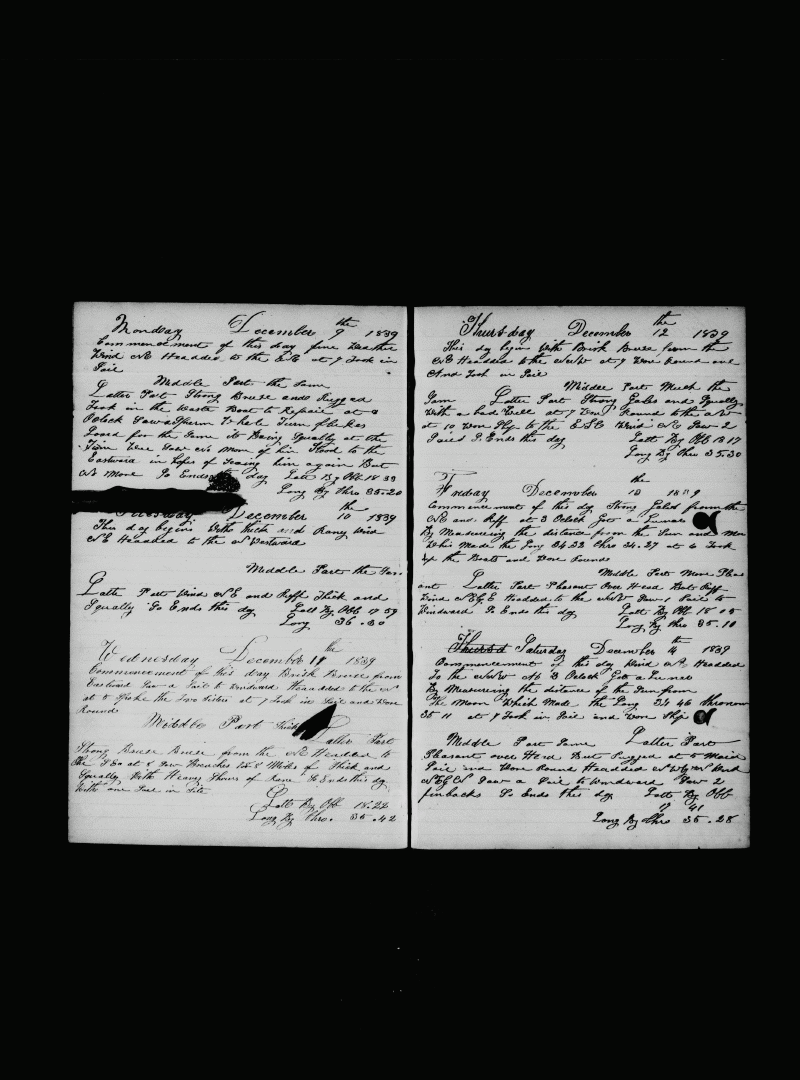 Monday December 9th 1839
Commencement of this day fine Weather
Wind NE Headded to the ESE at 7 Took in
Sail
Middle Part the Same
Latter Part Strong Breese and Rugg ad
Took in the Waste Boat to Repair at 8
Oclock Saw a Sperm Whale Turn flukes
Loued for the Same it Being Squally at the
Time Wee Saw No More of him Stood to the
Eastward in hopes of Seaing him again But
No More So Ends day Latt By Obb 18 33
Long By Chro 35.20
Tuesday December 10th 1839
This day begins With thick and Rany Wind
NE Headded to the N Westward
Middle Part the Sam
Latte Part Wind NE and Ruff Thick and
Squally So Ends this day Latt By Obb 17 59
Long 36.30
Wednesday December 11th 1839
Commencement of this day Brisk Breese from
Eastward Saw a Sail to windward Headded to the N
at 5 Spoke the Two Sisters at 7 Took in Sail and Wore
Round
Middle Part Thick
Latter Part
Strong Breese from the NE Headded to
the SE at 8 Saw Breaches Thick and
Squally With Heavy Shours of Rane So Ends this day
With one Sail in Site
Latt By Obb 18.22
Long By Chro. 35.42
Thursday December 12th 1839
This day begins With Brisk Breese from the
NE Headded to the NNW at 7 Wore Round and
And Took in Sail
Middle Part Much the
Sam Latter Part Strong Gales and Squally
With a bad Sea at 7 Wore Round to the NW
at 10 Wore Ship to the ESE Wind NE Saw 2
Sails So Ends the day Latt By Obb 18 17
Long By Chro 35.30
Friday December 13th 1839
Commencement of this day Strong Gales from the
NE and Ruff at 3 Oclock Got a Lunar
By Measuring the distance from the Sun and Moon
Whic Made the Long 34 32 Chro 34.27 at 6 Took
up the Boats and Wore Round
Middle Part More Pleas
ant Latter Part Pleasant Over Head But Ruff
Wind NEbE Headded to the NNW Saw 1 Sail to
Windward So Ends this day Latt By Obb 18 05
Long By Chro 35.10
Thursd Saturday December 14th 1839
Commencement of this day Wind NE Headded
To the NNW At 3 Oclock Got a Luner
By Measureing the distence of the Sun from
The Moon Which Made the Long 34 46 Chronom
35 11 at 7 Took in Sail and Wore Ship
Middle Part Same Latter Part
Pleasant over Head But Rugged at 5 Maid
Sail and Wore Round Headded NWbW Wind
NEbN Saw a Sail to Windward Saw 2
finbacks So Ends this day Latt By Obb
17 41
Long By Chro 35.28